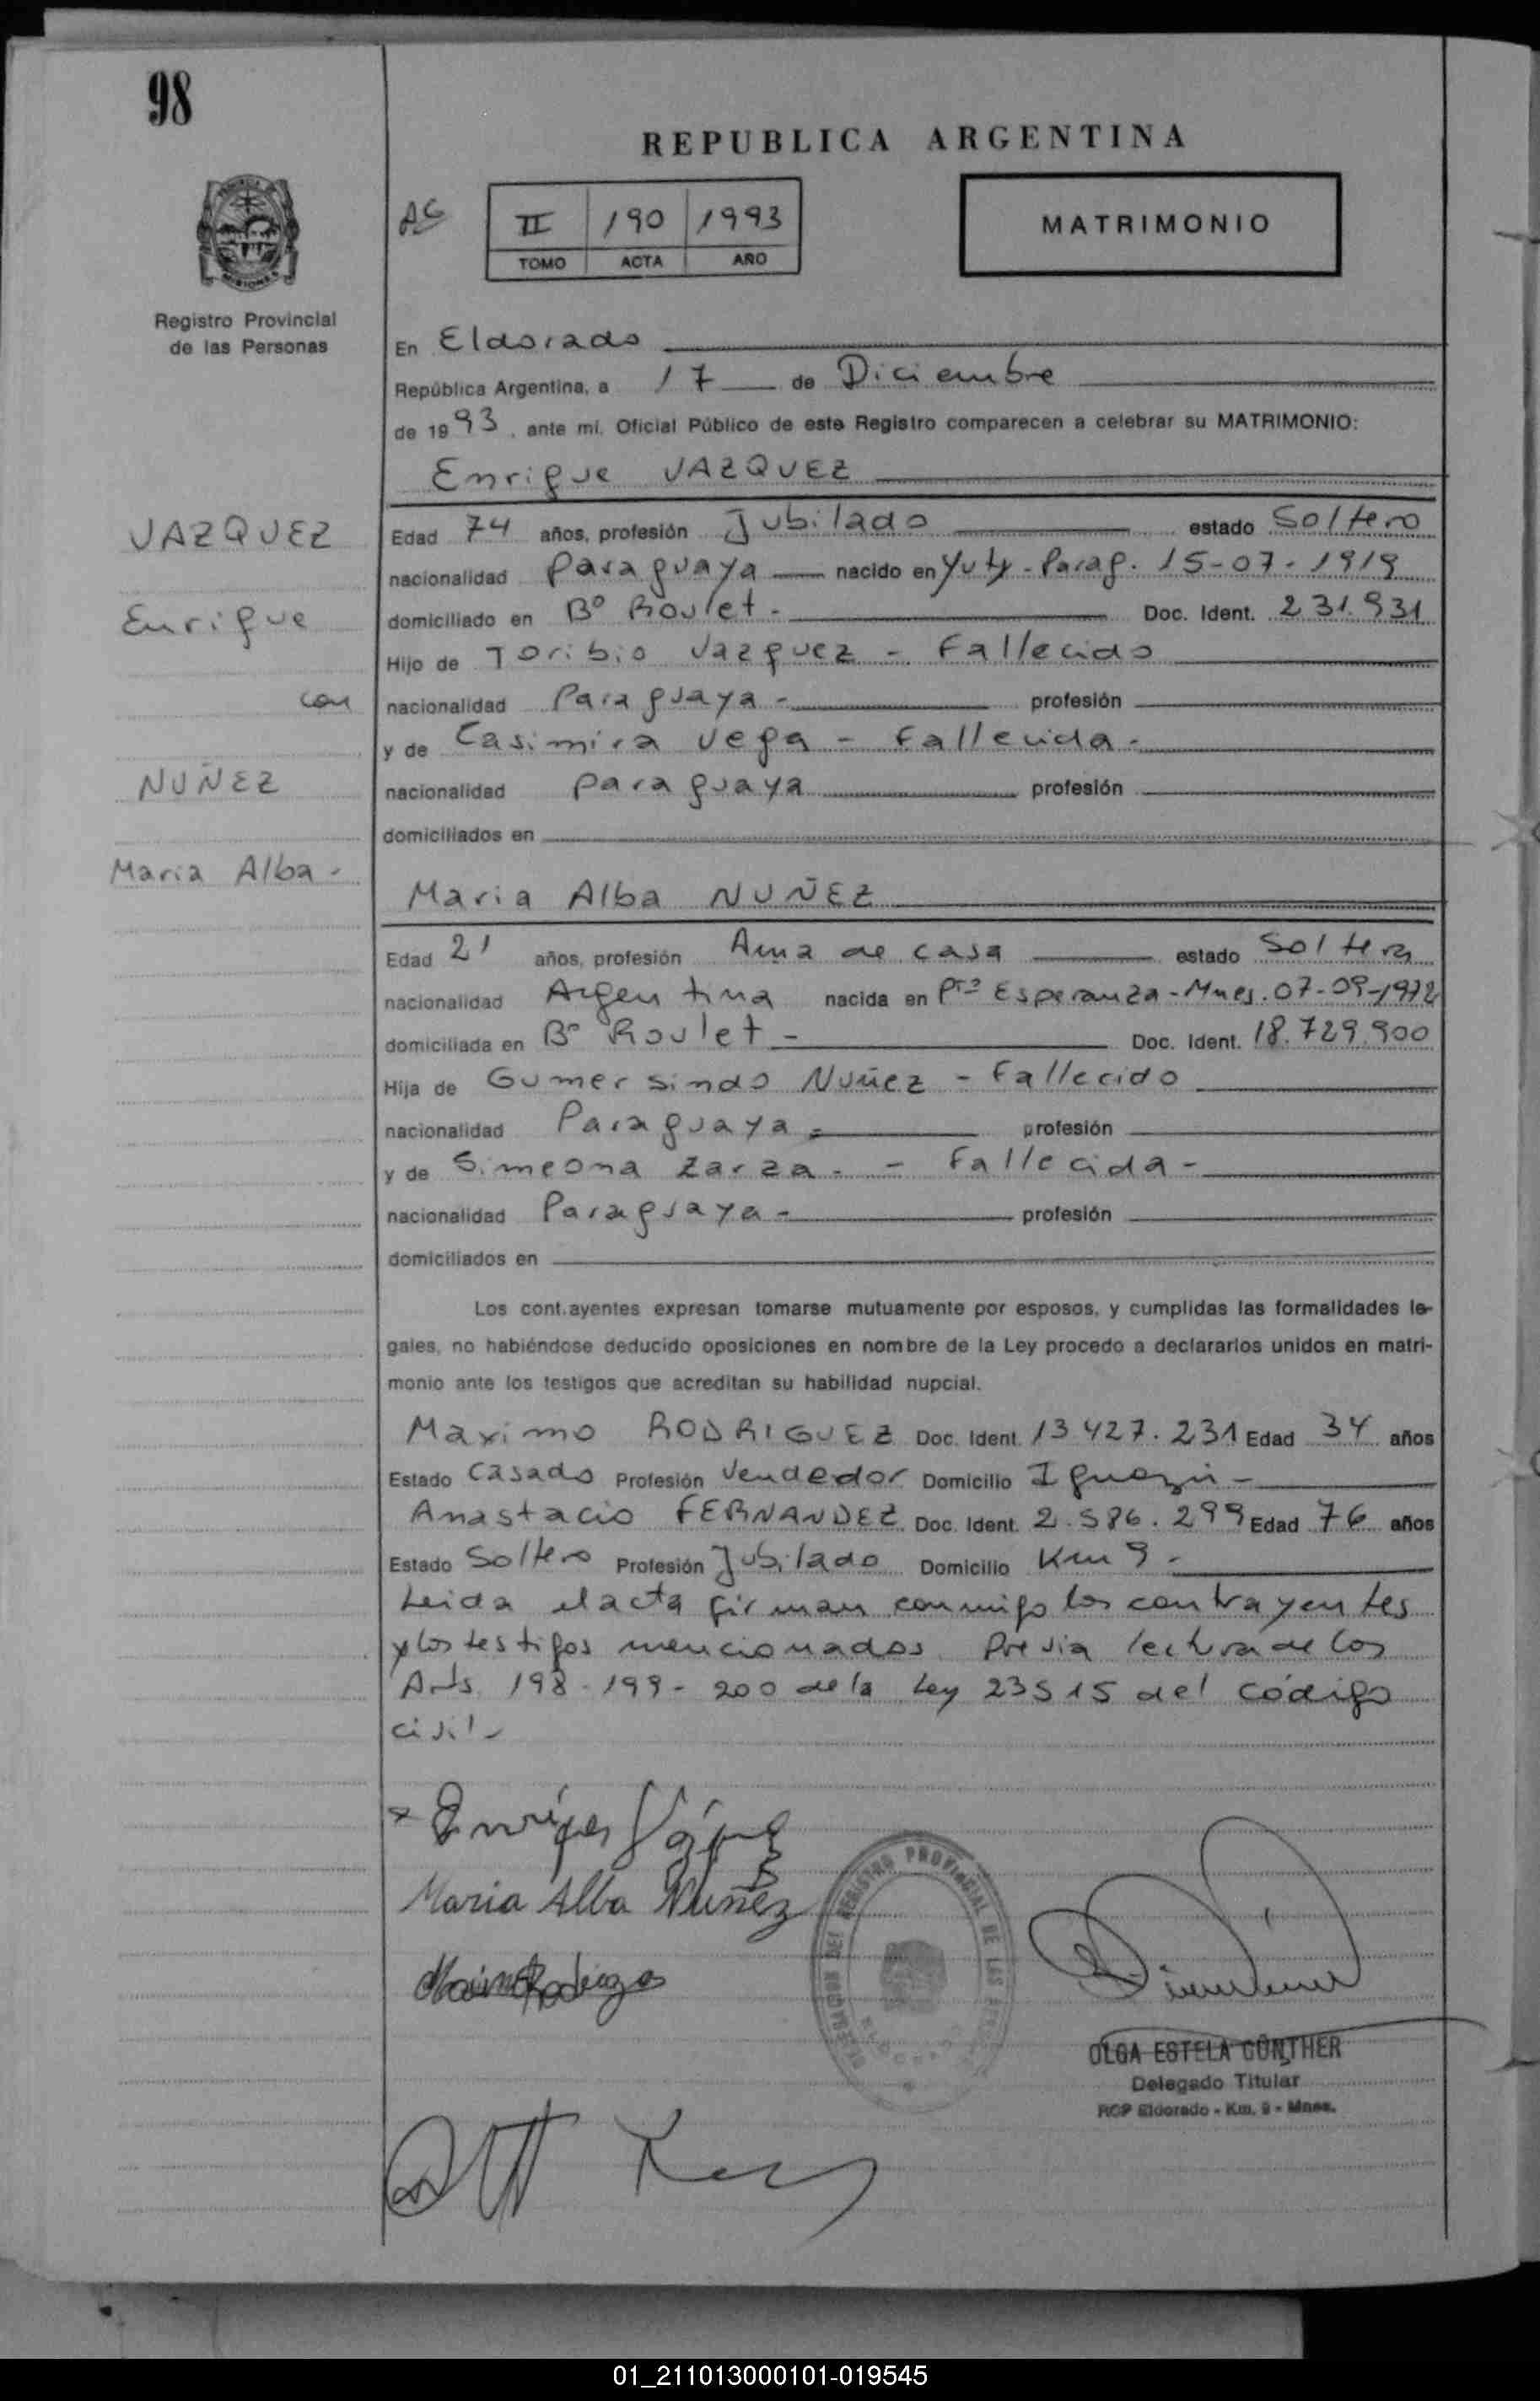 98
REPUBLICA ARGENTINA
II 190 1993
TOMO ACTA AÑO
MATRIMONIO
Registro Provincial
de las Personas
En Eldorado
República Argentina, a 17 de Diciembre
de 1993, ante mí, Oficial Público de este Registro comparecen a celebrar su MATRIMONIO:
Enrique VAZQUEZ
VAZQUEZ
Enrique
con
NUÑEZ
Maria Alba -
Edad 74 años, profesión Jubilado estado Soltero
nacionalidad Paraguaya nacido en Yuty - Parag. 15-07-1919
domiciliado en Bº Roulet - Doc. Ident. 231.931
Hijo de Toribio Vazquez - Fallecido
nacionalidad Paraguaya - profesión
y de Casimira Vega - Fallecida -
nacionalidad paraguaya profesión
domiciliados en
Maria Alba NUÑEZ
Edad 21 años, profesión Ama de casa estado Soltera
nacionalidad Argentina nacida en Pto Esperanza - Mnes. 07-09-1972
domiciliada en Bº Roulet - Doc. Ident. 18.729.900
Hija de Gumersindo Nuñez - Fallecido
nacionalidad Paraguaya - profesión
y de Simeona Zarza - - Fallecida -
nacionalidad Paraguaya - profesión
domiciliados en
Los contrayentes expresan tomarse mutuamente por esposos, y cumplidas las formalidades le-
gales, no habiéndose deducido oposiciones en nombre de la Ley procedo a declararlos unidos en matri-
monio ante los testigos que acreditan su habilidad nupcial.
Maximo RODRIGUEZ Doc. Ident. 13.427.231 Edad 34 años
Estado Casado Profesión Vendedor Domicilio Iguazú -
Anastacio FERNANDEZ Doc. Ident. 2.586.299 Edad 76 años
Estado Soltero Profesión Jubilado Domicilio Km 9 -
Leida el acta firman conmigo los contrayentes
y los testigos mencionados. Previa lectura de los
Arts. 198 - 199 - 200 de la Ley 23515 del código
civil -
Maria Alba Nuñez
REGISTRO PROVINCIAL DE LAS
OLGA ESTELA GÜNTHER
Delegado Titular
RCP Eldorado - Km. 9 - Mnes.
01_211013000101-019545